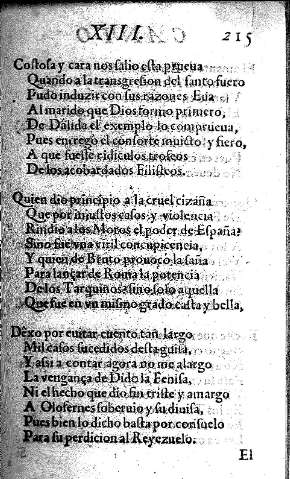 XIII. 215
Costosa y cara nos salio esta prueua
Quando a la transgresion del santo fuero
Pudo induzir con sus razones Eua
Al marido que Dios formo primero,
De Dalida el exemplo lo comprueua,
Pues entregò el consorte inuicto y fiero,
A que fuesse ridiculos trofeos
De los acobardados Filisteos.
Quien dio principio a la cruel cizaña
Que por injustos casos y violencia
Rindio a los Moros el poder de España?
Sino fue vna ciuil concupicencia,
Y quien de Bruto prouocò la saña
Para lançar de Roma la potencia
De los Tarquinos sino solo aquella
Que fue en vn mismo grado casta y bella,
Dexo por euitar cuento tan largo
Mil casos sucedidos desta guisa,
Y assi a contar agora no me alargo
La vengança de Dido la Fenisa,
Ni el hecho que dio fin triste y amargo
A Olofernes soberuio y su diuisa,
Pues bien lo dicho basta por consuelo
Para su perdicion al Reyezuelo.
El